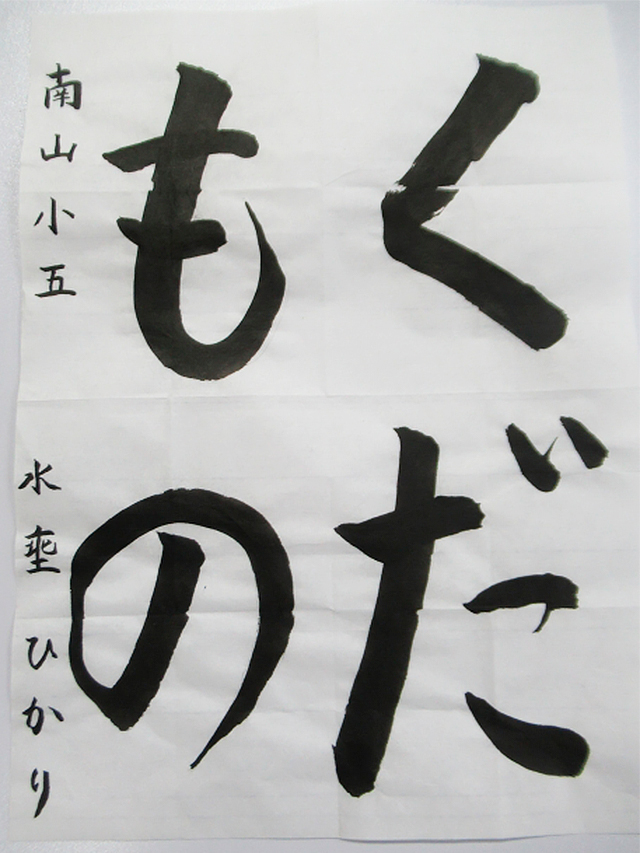 くだ
もの
南山小五 水埜ひかり